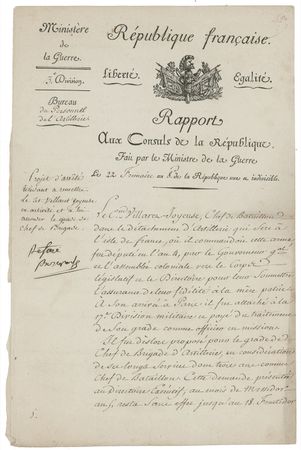 Ministère
de
la Guerre.
3e. Division.
Bureau
du Personnel
de l'Artillerie
République française.
Liberté. Egalité.
Rapport
Aux Consuls de la République.
Fait par le Ministre de la Guerre
Le 22 Frimaire an 8 de la République une et indivisible.
Projet d'arrêté
tendant à remettre
le Cen. Villaret-Joyeuse
en activité et à lui
accorder le grade de
Chef de Brigade.
Le Cen. Villaret-Joyeuse, Chef de Bataillon
dans le détachement d'Artillerie qui sert à
l'isle de france, où il commandoit cette arme
fut député en l'an 4, par le Gouverneur Gal.
et l'assemblée coloniale vers le Corps
législatif et le Directoire pour leur donner
l'assurance de leur fidélité à la mère patrie
A son arrivé à Paris il fut attaché à la
17e. Division militaire et payé du traitement
de son grade comme officier en mission
Il fut dèslors proposé pour le grade de
Chef de Brigade d'Artillerie, en considération
de ses longs services dans trois ans comme
Chef de Bataillon. Cette demande présentée
au directoire Exécutif, au mois de Messidor
an 5, resta sans effet jusqu'au 18. Fructidor